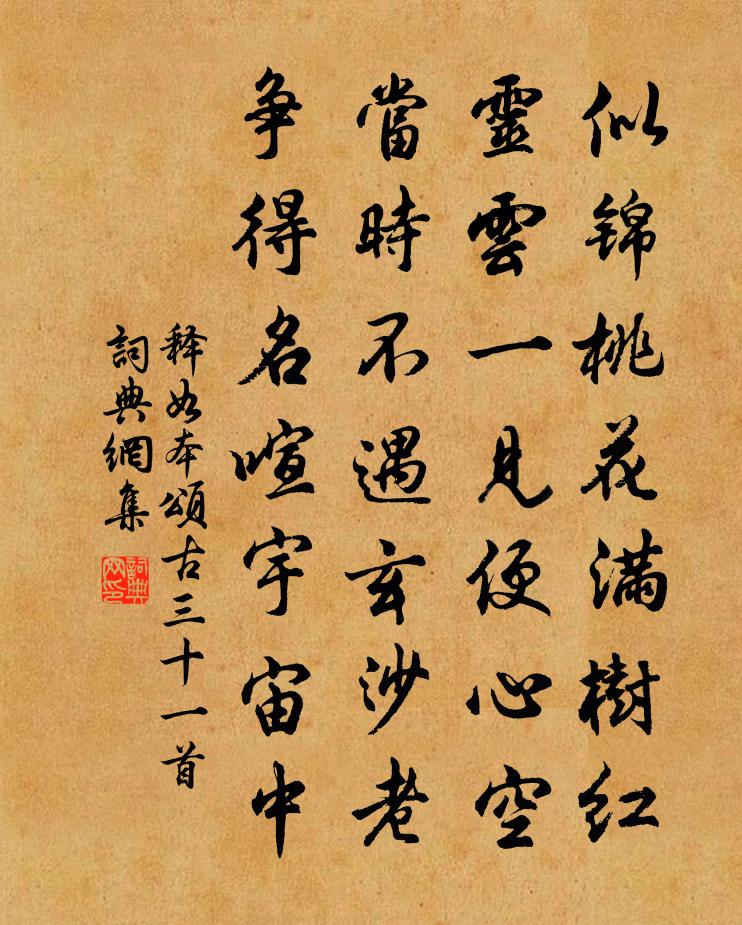 似锦桃花滿樹紅
靈雲一見便心空
當時不遇玄沙老
争得名喧宇宙中
释如本頌古三十一首
詞典網集
詞典網印